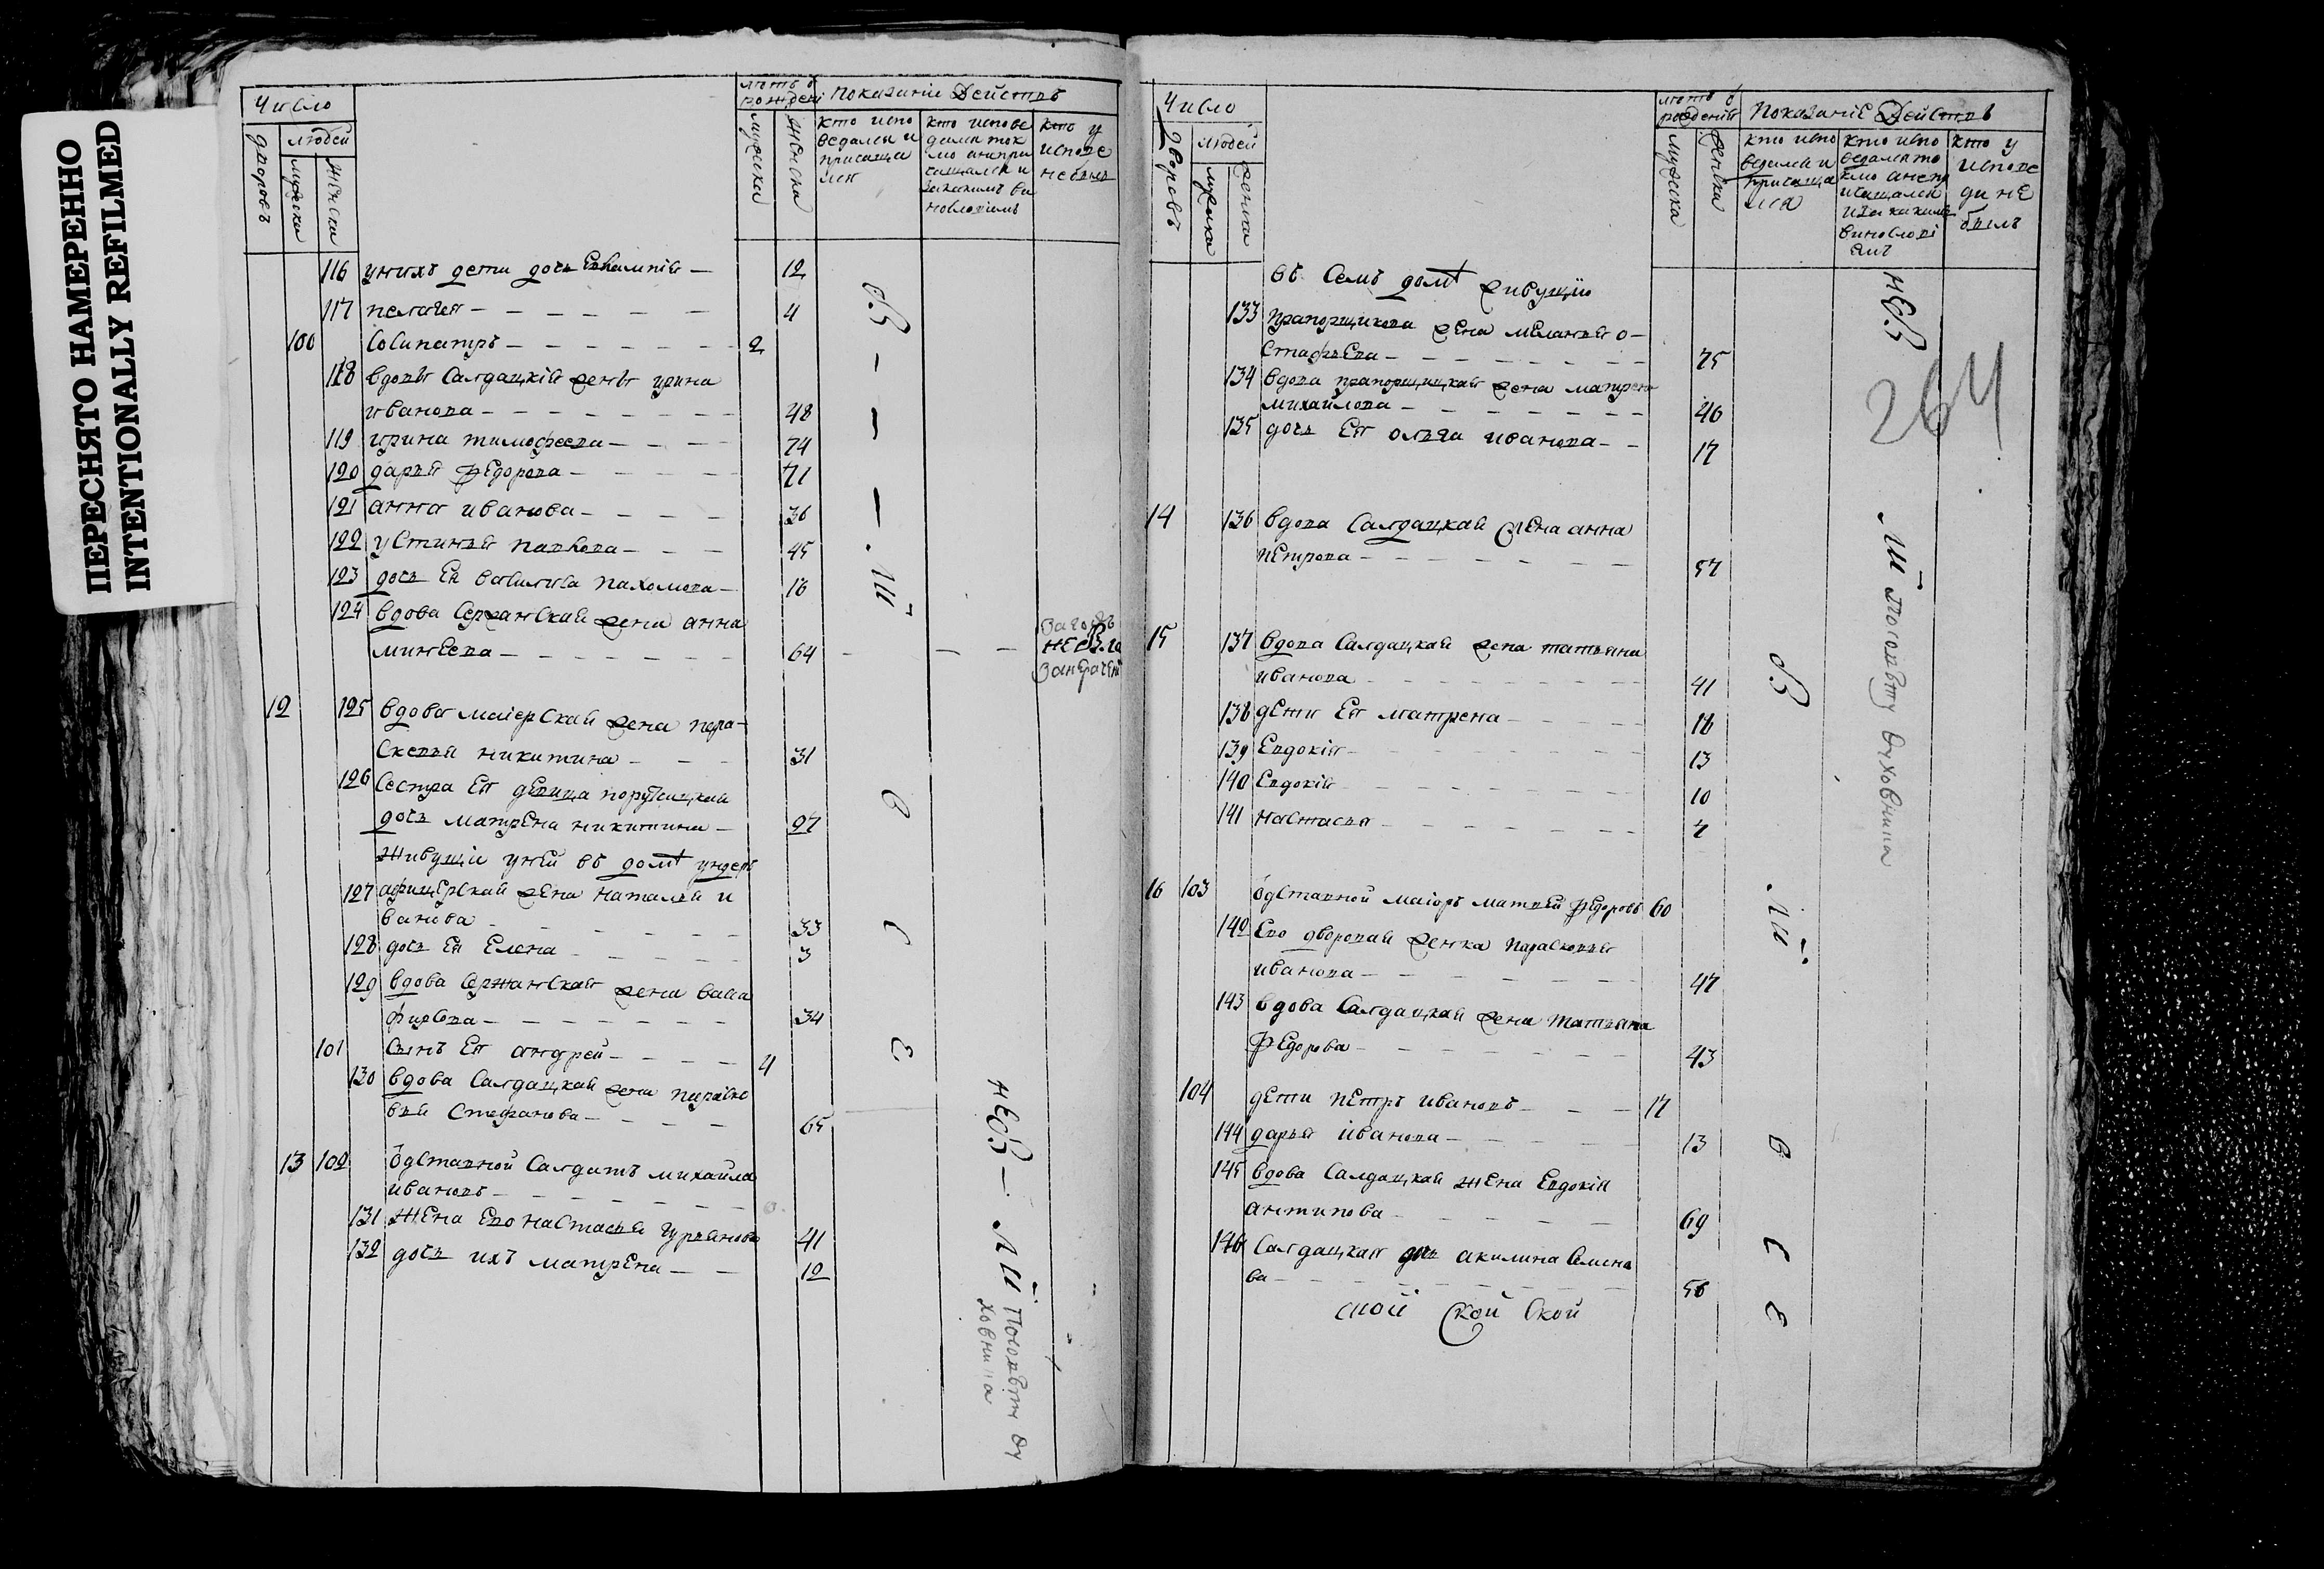 ПЕРЕСНЯТО НАМЕРЕННО
INTENTIONALLY REFILMED
Число
дворовъ
людей
мужеска
женска
летъ о
рождени
мужеска
женска
показание Действъ
кто испо
ведался и
причаща
лся
кто испове
дался ток
мо а не при
чащался и
за какимъ ви
нословiемъ
кто у
испове
не былъ
116 у нихъ дети дочь Евлампия — 12
117 пелагея — 4
100 Сосипатръ — 2
118 вдовы Салдацкiя жены ирина
иванова — 48
119 ирина тимофеева — 74
120 дарья Федорова — 71
121 анна иванова — 36
122 устинья павлова — 45
123 дочь Ея василиса пахомова — 16
124 вдова Сержанская жена анна
минеева — 64
12 125 вдова маиерская жена пара-
скевья никитина — 31
126 Сестра Ея девица поруцкая
дочь матрена никитина — 27
Живущiи у ней въ домѣ ундеръ
127 афицерская жена наталья и
ванова — 33
128 дочь Ея Елена — 3
129 вдова Сержанская жена васа
фирсова — 34
101 Сынъ Ея андрей — 4
130 вдова Салдацкая жена параско
вья Стефанова — 65
13 102 Одставной Салдатъ михайла
ивановъ —
131 Жена Ево настасья гурьянова 41
132 дочь ихъ матрена — 12
Число
Дворовъ
людей
мужеска
женска
летъ о
рождений
мужеска
женска
показание Действъ
кто испо
ведался и
причаща
лся
кто испо
ведался то
кмо а не пр
ичащался
и за какимъ
винословi
емъ
кто у
испове
ди не
былъ
264
въ Семъ домѣ живущiи
133 прапорщикова жена меланья о-
стафьева — 75
134 вдова прапорщицкая жена матрена
михайлова — 46
135 дочь Ея ольга иванова — 17
14 136 вдова Салдацкая жена анна
петрова — 57
15 137 вдова Салдацкая жена татьяна
иванова — 41
138 дети Ея матрена — 18
139 Евдокiя — 13
140 Евдокiя — 10
141 настасья — 7
16 103 Одставной маiоръ матвей Федоровъ 60
142 Ево дворовая женка парасковья
иванова — 47
143 вдова Салдацкая жена татьяна
Федорова — 43
104 дети петръ ивановъ — 17
144 дарья иванова — 13
145 вдова Салдацкая жена Евдокiя
антипова — 69
146 Салдацкая дочь акилина Семено
ва — 56
ской Ской Ской